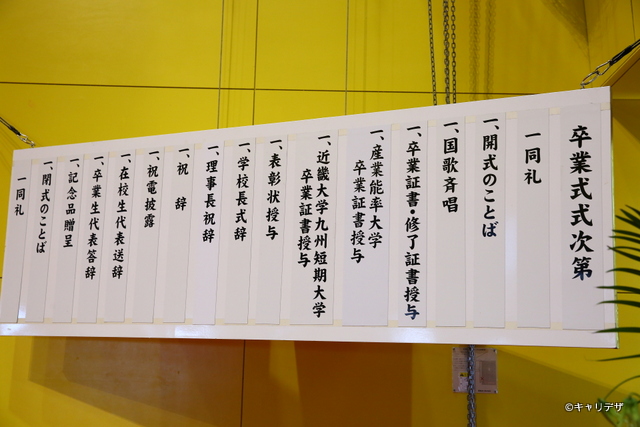 卒業式式次第
一同礼
一、開式のことば
一、国歌斉唱
一、卒業証書・修了証書授与
一、産業能率大学
卒業証書授与
一、近畿大学九州短期大学
卒業証書授与
一、表彰状授与
一、学校長式辞
一、理事長祝辞
一、祝 辞
一、祝電披露
一、在校生代表送辞
一、卒業生代表答辞
一、記念品贈呈
一、閉式のことば
一同礼
©キャリデザ